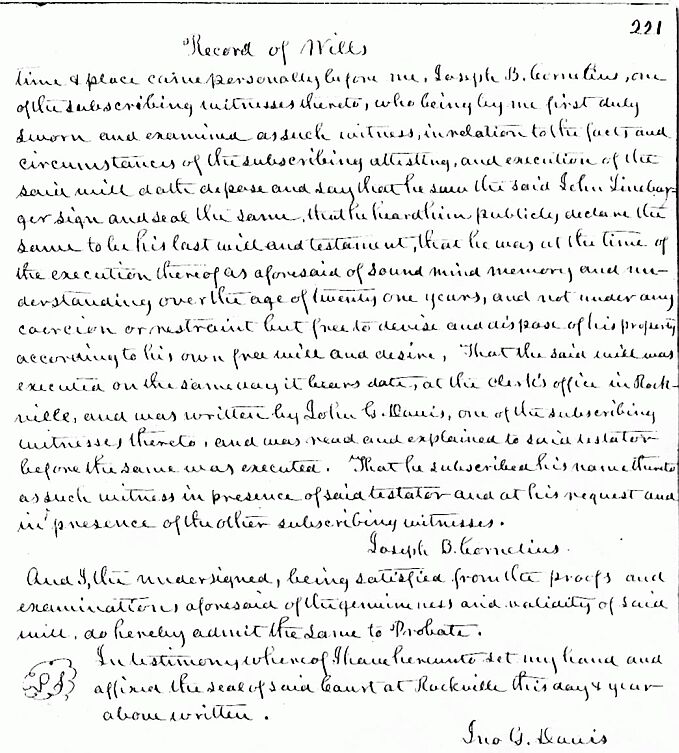 221
Record of Wills
time & place came personally before me, Joseph B. Cornelius, one
of the subscribing witnesses thereto, who being by me first duly
sworn and examined as such witness, in relation to the facts and
circumstances of the subscribing attesting, and execution of the
said will doth depose and say that he saw the said John Linebar-
ger sign and seal the same, that he heard him publicly declare the
same to be his last will and testament, that he was at the time of
the execution thereof as aforesaid of sound mind memory and un-
derstanding over the age of twenty one years, and not under any
coercion or restraint but free to devise and dispose of his property
according to his own free will and desire, That the said will was
executed on the same day it bears date, at the clerk's office in Rock-
ville, and was written by John G. Davis, one of the subscribing
witnesses thereto, and was read and explained to said testator
before the same was executed. That he subscribed his name thereto
as such witness in presence of said testator and at his request and
in presence of the other subscribing witnesses.
Joseph B. Cornelius.
And I, the undersigned, being satisfied from the proofs and
examinations aforesaid of the genuineness and validity of said
will, do hereby admit the same to Probate.
In testimony whereof I have hereunto set my hand and
L S affixed the seal of said Court at Rockville this day & year
above written.
Jno G. Davis